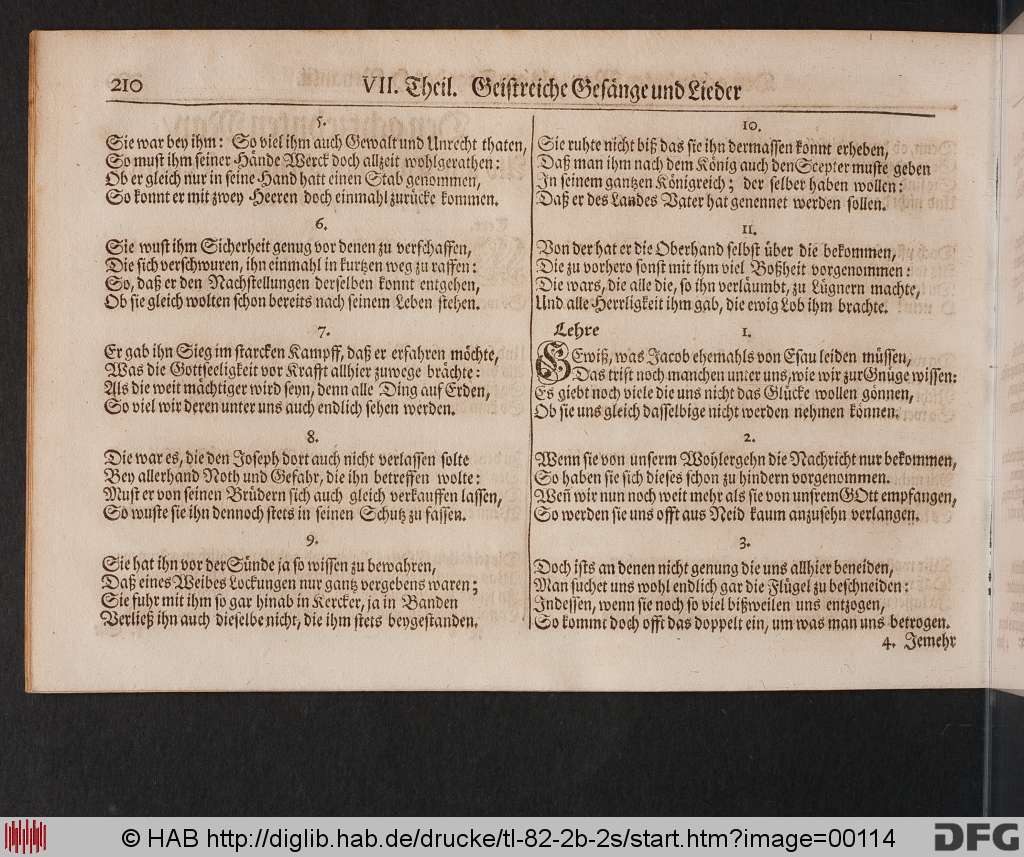 210
VII. Theil. Geistreiche Gesänge und Lieder
5.
Sie war bey ihm: So viel ihm auch Gewalt und Unrecht thaten,
So must ihm seiner Hände Werck doch allzeit wohlgerathen:
Ob er gleich nur in seine Hand hatt einen Stab genommen,
So konnt er mit zwey Heeren doch einmahl zurücke kommen.
6.
Sie wust ihm Sicherheit genug vor denen zu verschaffen,
Die sich verschwuren, ihn einmahl in kurtzen weg zu raffen:
So, daß er den Nachstellungen derselben konnt entgehen,
Ob sie gleich wolten schon bereits nach seinem Leben stehen.
7.
Er gab ihn Sieg im starcken Kampff, daß er erfahren möchte,
Was die Gottseeligkeit vor Krafft allhier zuwege brächte:
Als die weit mächtiger wird seyn, denn alle Ding auf Erden,
So viel wir deren unter uns auch endlich sehen werden.
8.
Die war es, die den Joseph dort auch nicht verlassen solte
Bey allerhand Noth und Gefahr, die ihn betreffen wolte:
Must er von seinen Brüdern sich auch gleich verkauffen lassen,
So wuste sie ihn dennoch stets in seinen Schutz zu fassen.
9.
Sie hat ihn vor der Sünde ja so wissen zu bewahren,
Daß eines Weibes Lockungen nur gantz vergebens waren;
Sie fuhr mit ihm so gar hinab in Kercker, ja in Banden
Verließ ihn auch dieselbe nicht, die ihm stets beygestanden.
10.
Sie ruhte nicht biß das sie ihn dermassen konnt erheben,
Daß man ihm nach dem König auch den Scepter muste geben
In seinem gantzen Königreich; der selber haben wollen:
Daß er des Landes Vater hat genennet werden sollen.
11.
Von der hat er die Oberhand selbst über die bekommen,
Die zu vorhero sonst mit ihm viel Boßheit vorgenommen:
Die wars, die alle die, so ihn verläumbt, zu Lügnern machte,
Und alle Herrligkeit ihm gab, die ewig Lob ihm brachte.
Lehre 1.
GEwiß, was Jacob ehemahls von Esau leiden müssen,
Das trift noch manchen unter uns, wie wir zur Gnüge wissen:
Es giebt noch viele die uns nicht das Glücke wollen gönnen,
Ob sie uns gleich dasselbige nicht werden nehmen können.
2.
Wenn sie von unserm Wohlergehn die Nachricht nur bekommen,
So haben sie sich dieses schon zu hindern vorgenommen.
Weñ wir nun noch weit mehr als sie von unsrem GOtt empfangen,
So werden sie uns offt aus Neid kaum anzusehn verlangen.
3.
Doch ists an denen nicht genung die uns allhier beneiden,
Man suchet uns wohl endlich gar die Flügel zu beschneiden:
Indessen, wenn sie noch so viel bißweilen uns entzogen,
So kommt doch offt das doppelt ein, um was man uns betrogen.
4. Jemehr
© HAB http://diglib.hab.de/drucke/tl-82-2b-2s/start.htm?image=00114
DFG